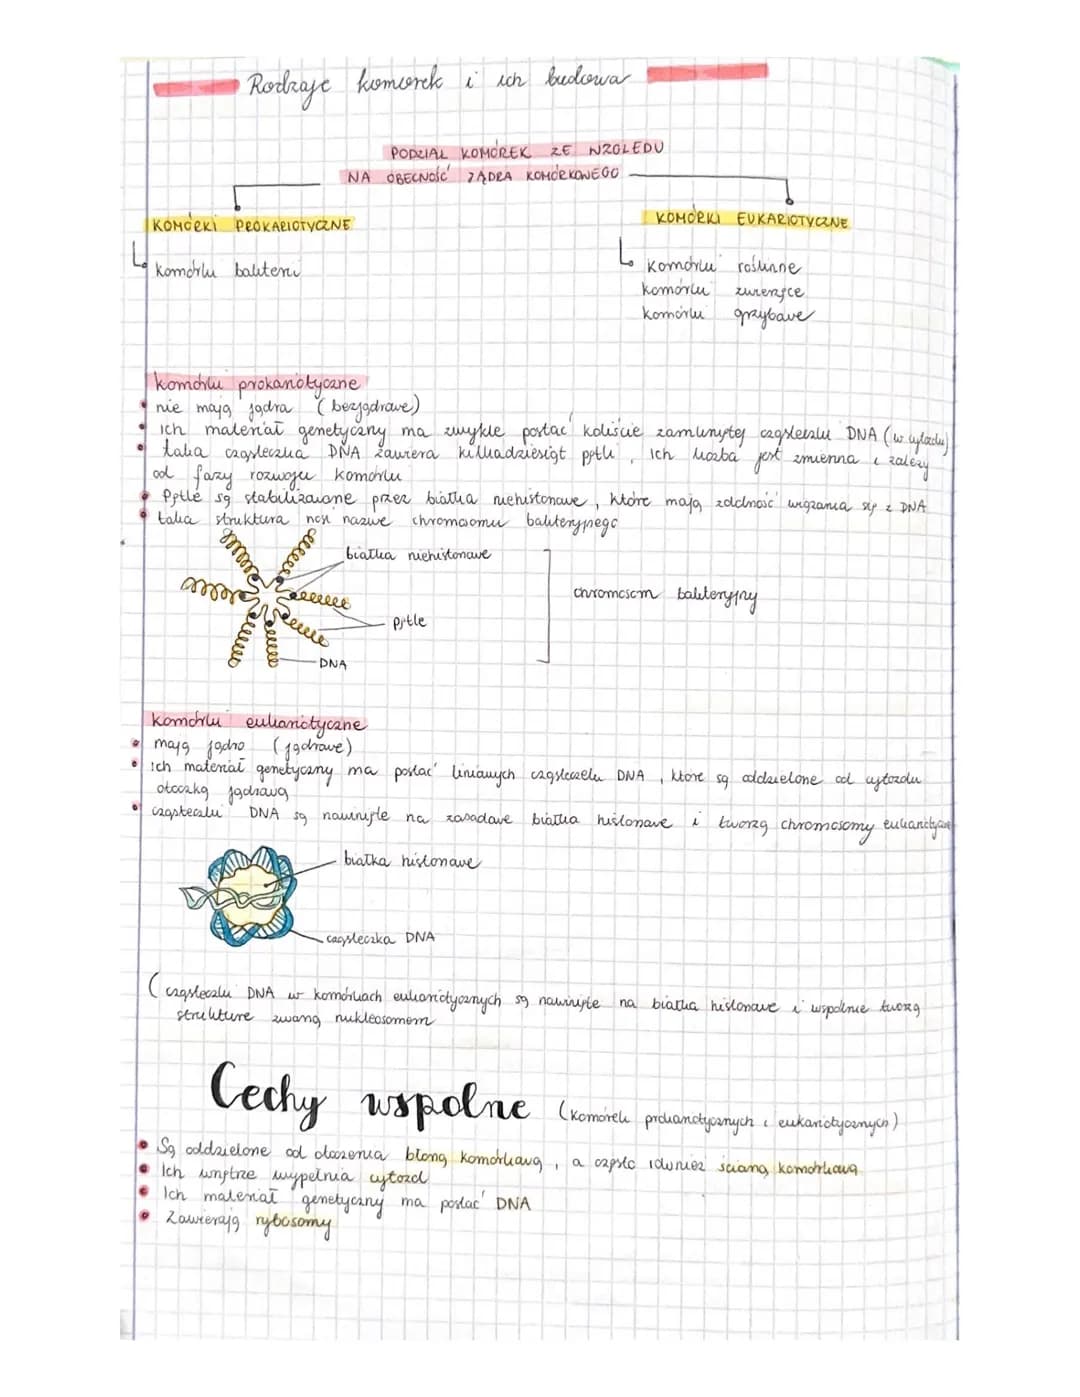 Rodzaje komórek i ich budowa
PODZIAŁ KOMÓREK ZE WZGLĘDU
NA OBECNOŚĆ JĄDRA KOMÓRKOWEGO
KOMÓRKI PROKARIOTYCZNE
KOMÓRKI EUKARIOTYCZNE
komórki bakterii
komórki roślinne
komórki zwierzęce
komórki grzybowe
komórki prokariotyczne
nie mają jądra (bezjądrowe)
ich materiał genetyczny ma zwykle postać koliście zamkniętej cząsteczki DNA (w cytozolu)
taka cząsteczka DNA zawiera kilkadziesiąt pętli, ich liczba jest zmienna i zależy
od fazy rozwoju komórki
Pętle są stabilizowane przez białka niehistonowe, które mają zdolność wiązania się z DNA
taka struktura nosi nazwę chromosomu bakteryjnego
białka niehistonowe
chromosom bakteryjny
pętle
DNA
komórki eukariotyczne
mają jądro (jądrowe)
ich materiał genetyczny ma postać liniowych cząsteczek DNA, które są oddzielone od cytozolu
otoczką jądrową
cząsteczki DNA są nawinięte na zasadowe białka histonowe i tworzą chromosomy eukariotyczne
białka histonowe
cząsteczka DNA
(cząsteczki DNA w komórkach eukariotycznych są nawinięte na białka histonowe i wspólnie tworzą
strukturę zwaną nukleosomem
Cechy wspolne (komórek prokariotycznych i eukariotycznych)
Są oddzielone od otoczenia błoną komórkową, a często również ścianą komórkową
Ich wnętrze wypełnia cytozol
Ich materiał genetyczny ma postać DNA
Zawierają rybosomy